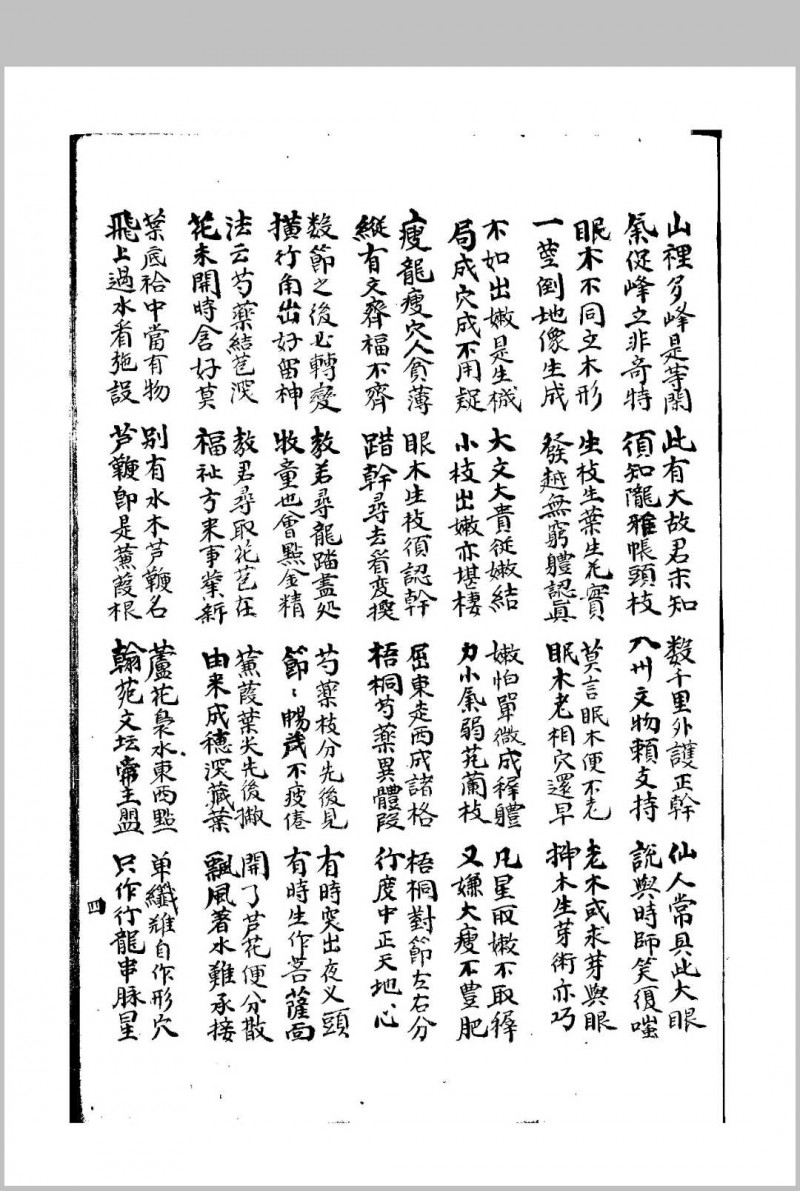 山裡多峰是等閑
氣從峰立非奇特
此有大故君未知
須知隴雖帳頭枝
数千里外護正幹
八州文物賴支持
仙人常具此大眼
說與時師笑復嗤
眠木不同立木形
一莖倒地像生成
生枝生葉生花實
發越無窮體認真
莫言眠木便不老
眠木老相穴還早
老木或求芽與眼
抻木生芽術亦巧
不如出嫩是生機
局成穴成不用疑
大文大貴從嫩結
小枝出嫩亦堪棲
嫩怕單微成稺體
力小氣弱苑蘭枝
凡星取嫩不取稺
又嫌大瘦不豊肥
瘦龍瘦穴人貧薄
縱有文齊福不齊
眼木生枝須認幹
踏幹尋去看变換
屈東走西成諸格
梧桐芍藥異體段
梧桐對節左右分
行度中正天地心
数節之後必轉變
横行角出好留神
教君尋龍踏盡処
牧童也會點金精
芍藥枝分先後見
節〻暢茂不疲倦
有時突出夜乂頭
有時生作菩薩面
法云芍藥結苞深
花未開時含好莫
教君尋取花苞在
福祉方来事業新
蒹葭葉尖先後撤
由来成穗深藏葉
開了芦花便分散
飄風著水難承接
葉底袷中當有物
飛上過水看施設
别有水木芦鞭名
芦鞭即是蒹葭根
蘆花裊水東西點
翰苑文坛帝主盟
单纖雖自作形穴
只作行龍串脉星
四